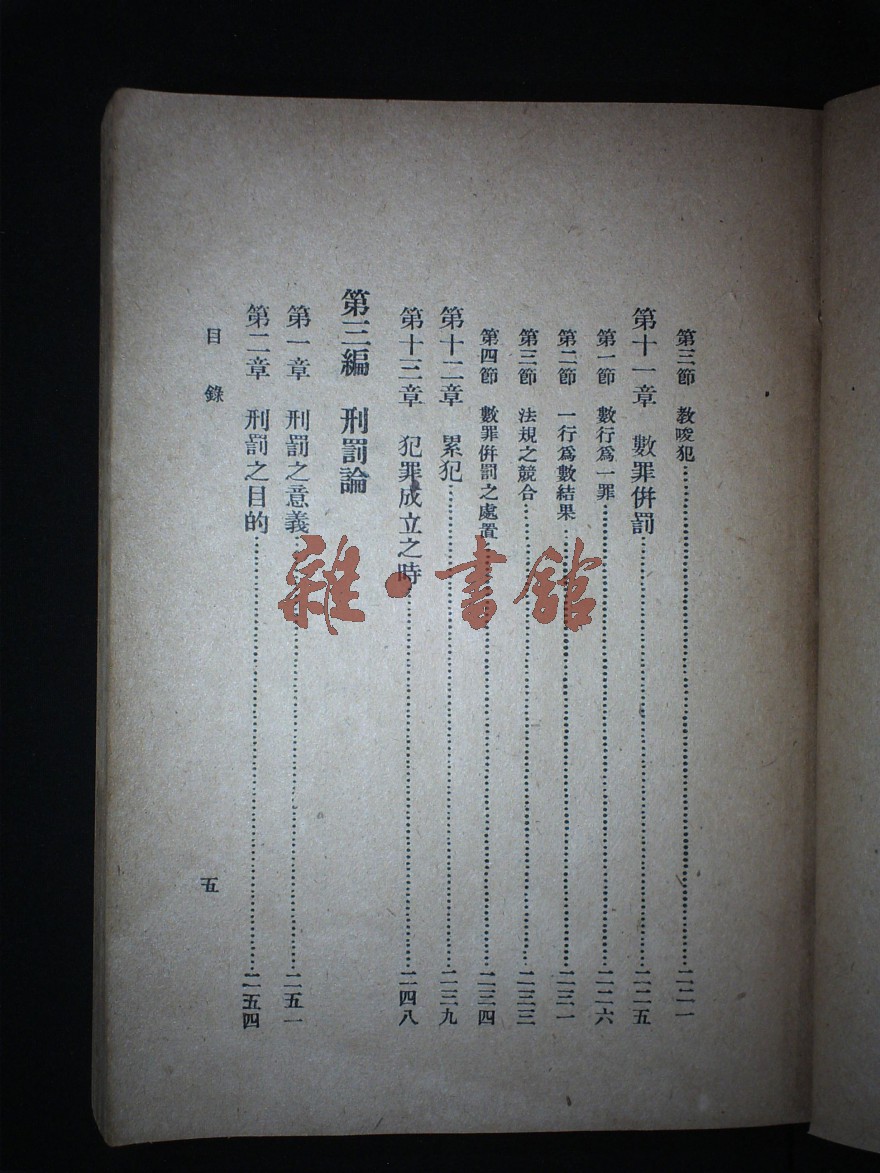 第三節 教唆犯……二二一
第十一章 數罪併罰……二二五
第一節 數行爲一罪……二二六
第二節 一行爲數結果……二三一
第三節 法規之競合……二三三
第四節 數罪併罰之處置……二三四
第十二章 累犯……二三九
第十三章 犯罪成立之時……二四八
第三編 刑罰論
第一章 刑罰之意義……二五一
第二章 刑罰之目的……二五四
目錄 五
雜·書館